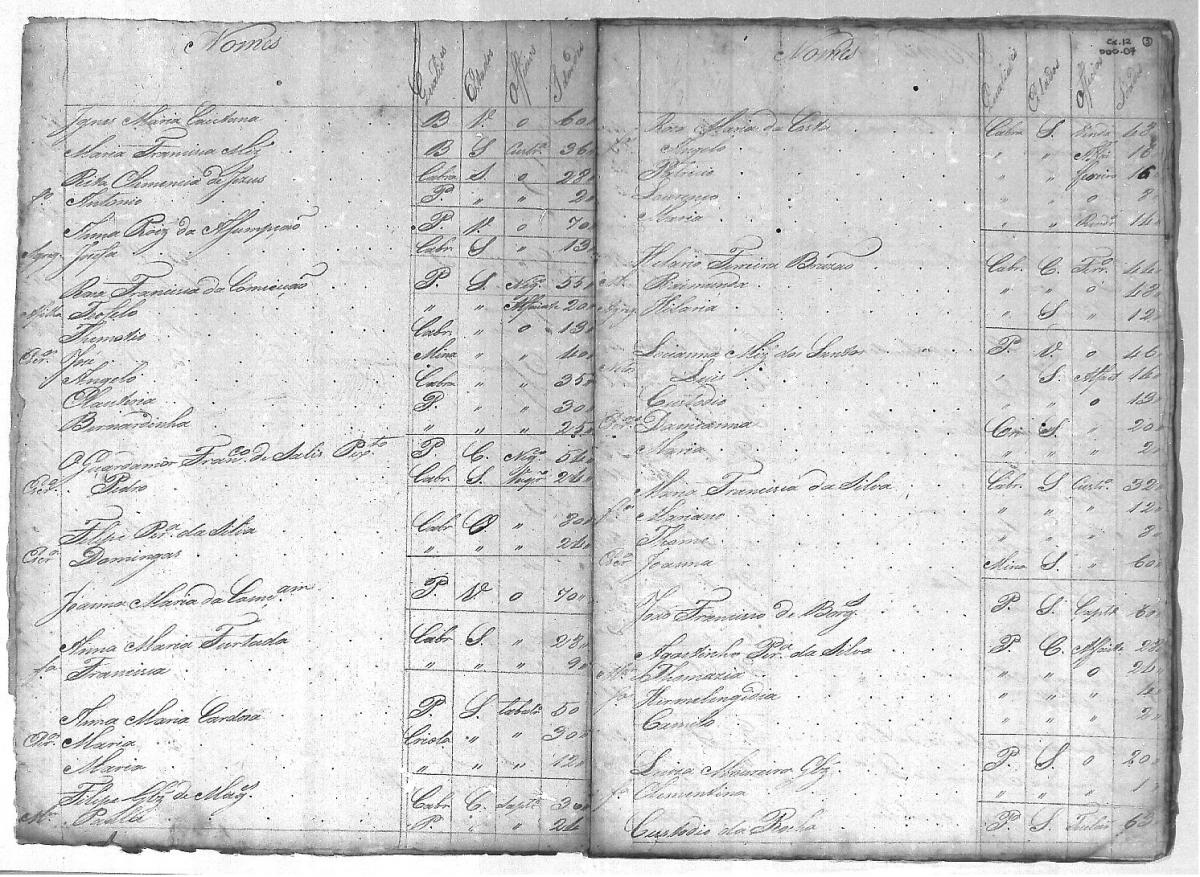 Nomes Qualid.es Estados Officios Idades
Ignes Maria Caietana B V.a o 60
Maria Francisca B S Custr.a 36
Rita Clemencia de Jezus Cabra S o 28
f.o Antonio P. " " 2
Anna Roiz da Assumpcaõ P V.a o 70
Agreg. Josefa Cabr. S " 13
Roza Francisca da Conceicaõ P. S. Neg.a 55
Teofelo " " Alfaiate 20
Themotio Cabr. " o 13
Escr. Joze Mina " " 40
Angelo Cabra " " 35
P. " " 30
Bernardinha " " " 25
O Guardamor Fran.co de Salis P. C. Neg.o 54
Escr. Pedro Cabr. S. 24
Felipe Per.a da Silva Cabr " 80
Escr. Domingas " " " 24
Joanna Maria da Conc.am P V o 70
Anna Maria Furtada Cabr S. " 28
f.a Francisca " " " 9
Anna Maria Cardoza P. S. 50
Escr. Maria Criola " " 30
Maria " " " 12
Felipe Glz de Mag.s Cabr C. Sapt.o 30
M.er Paulla P. " " 24
Cx.12
DOC-07
3
Nomes Qualid.es Estados Officios Idades
Roza Maria da Costa Cabra S. Renda 43
Angelo " " 18
Patricio " " 16
Lourenço " " o 8
Maria " " Rend.a 14
Hilario Ferreira Brazao Cabr. C. Ferr.o 44
M. Raimunda " " o 48
Agreg. Hilaria " S " 12
Lucianna Miz dos Santos P. V. o 46
Neto Luis " S. Alfait 16
Custodio " " o 13
Escr.a Damianna S. " 20
Maria " " " 2
Maria Francisca da Silva Cabr. S Custr.a 32
f.o Mariano " " " 12
Thome " " " 8
Escr. Joanna Mina S. " 60
Joze Francisco de Borg.s P. S. Sapt.o 50
Agostinho Per.a da Silva P C. Alfaiate 28
M.er Thomazia " " o 24
fa Hermelingidia " " " 4
Camilo " " " 2
Luiza Monteiro Glz. P. S. o 20
fa Clementina " " " 1
Custodio da Rocha P S. 63